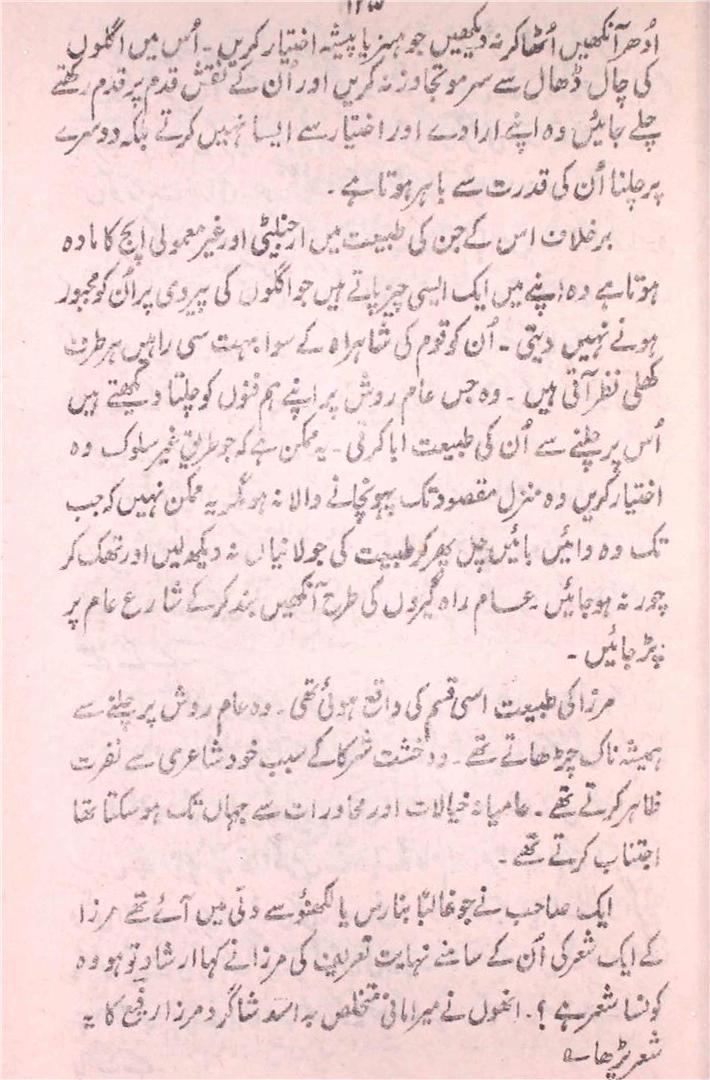 ۱۲۳
اُدھر آنکھیں اُٹھا کر نہ دیکھیں جو ہنر یا پیشہ اختیار کریں ۔ اُس میں اگلوں
کی چال ڈھال سے سرمو تجاوز نہ کریں اور اُن کے نقش قدم پر قدم رکھتے
چلے جائیں وہ اپنے ارادے اور اختیار سے ایسا نہیں کرتے بلکہ دوسرے
پر چلنا اُن کی قدرت سے باہر ہوتا ہے ۔
برخلاف اس کے جن کی طبیعت میں ارجنلیٹی اور غیر معمولی اپج کا مادہ
ہوتا ہے وہ اپنے میں ایک ایسی چیز پاتے ہیں جو اگلوں کی پیروی پر اُن کو مجبور
ہونے نہیں دیتی ۔ اُن کو قوم کی شاہراہ کے سوا بہت سی راہیں ہر طرف
کھلی نظر آتی ہیں ۔ وہ جس عام روش پر اپنے ہم فنوں کو چلتا دیکھتے ہیں
اُس پر چلنے سے اُن کی طبیعت ابا کرتی ۔ یہ ممکن ہے کہ جو طریق غیر سلوک وہ
اختیار کریں وہ منزل مقصود تک پہونچانے والا نہ ہو مگر یہ ممکن نہیں کہ جب
تک وہ دائیں بائیں چل پھر کر طبیعت کی جولانیاں نہ دیکھ لیں اور تھک کر
چور نہ ہو جائیں ۔ عام راہ گیروں کی طرح آنکھیں بند کر کے شارع عام پر
پڑ جائیں ۔
مرزا کی طبیعت اسی قسم کی واقع ہوئی تھی ۔ وہ عام روش پر چلنے سے
ہمیشہ ناک چڑھاتے تھے ۔ وہ خشت شرکا کے سبب خود شاعری سے نفرت
ظاہر کرتے تھے ۔ عامیانہ خیالات اور محاورات سے جہاں تک ہو سکتا تھا
اجتناب کرتے تھے ۔
ایک صاحب نے جو غالبًا بنارس یا لکھنؤ سے دلّی میں آئے تھے مرزا
کے ایک شعر کی اُن کے سامنے نہایت تعریف کی مرزا نے کہا ارشاد تو ہو وہ
کونسا شعر ہے ؟ ۔ انھوں نے میر امانی متخلص بہ اسد شاگرد مرزا رفیع کا یہ
شعر پڑھا ؎